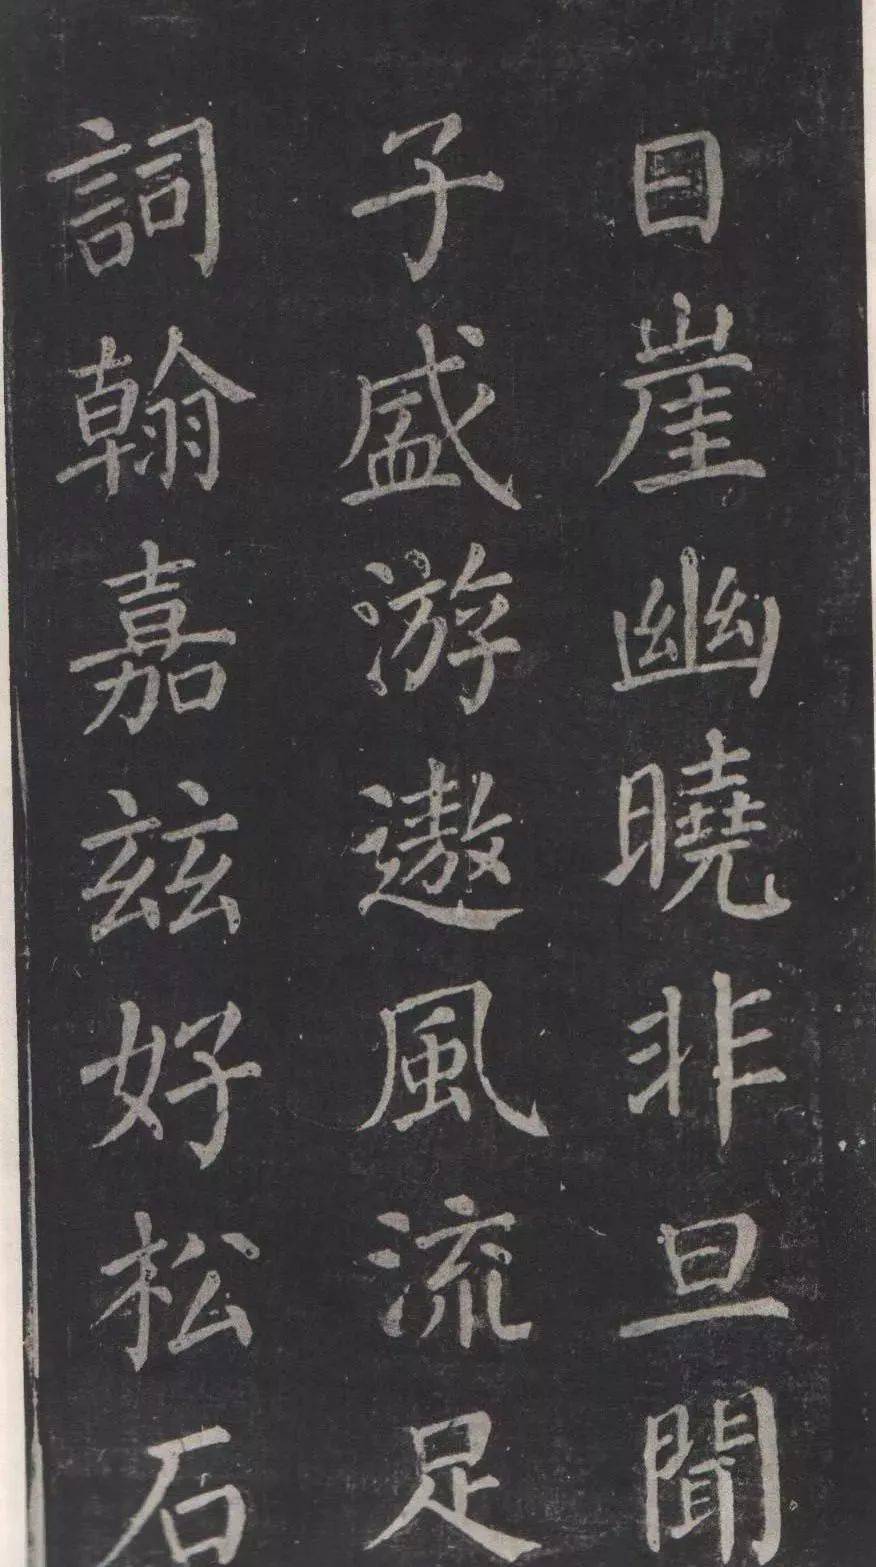 目崖幽曉非旦聞
子盛游遨風流足
詞翰嘉玆好松石